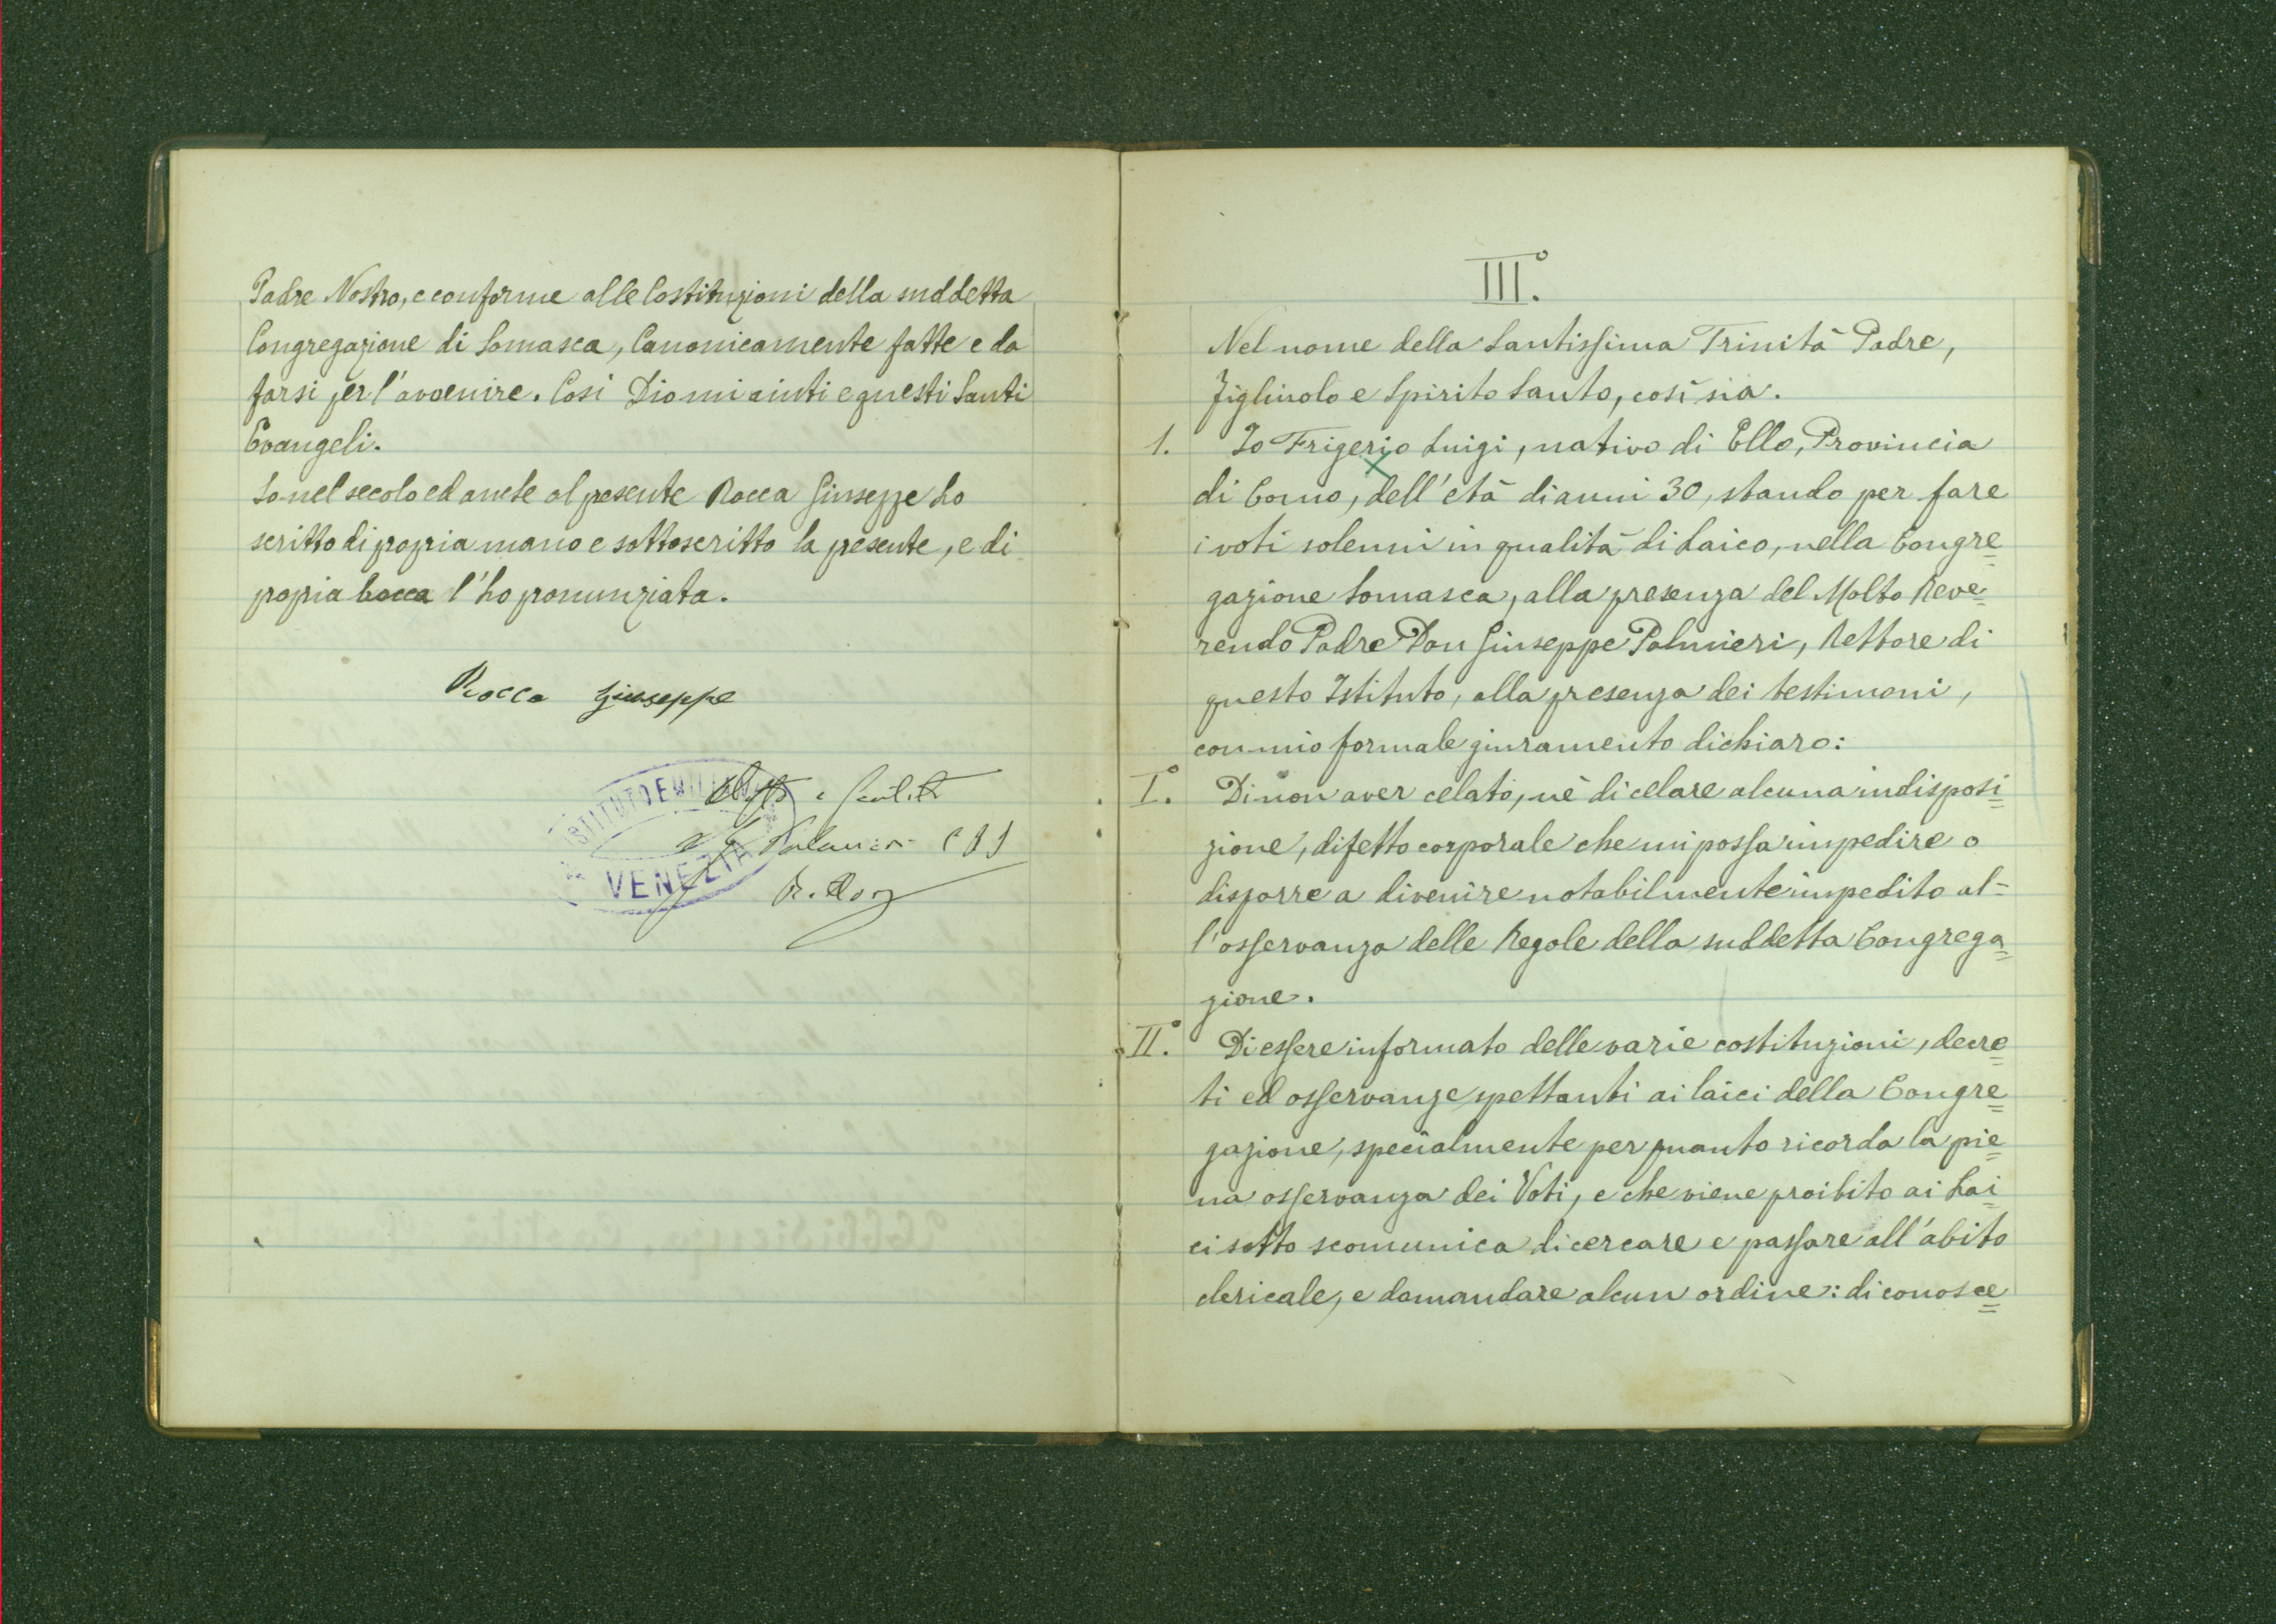 Padre Nostro, e conforme alle Costituzioni della suddetta
Congregazione di Somasca, Canonicamente fatte e da
farsi per l'avvenire. Così Dio mi aiuti e questi Santi
Evangeli.
Io nel secolo ed anche al presente Rocca Giuseppe ho
scritto di propria mano e sottoscritto la presente, e di
propria bocca l'ho pronunziata.
Rocca Giuseppe
ISTITUTO EMILIANI
VENEZIA
III.°
Nel nome della Santissima Trinità Padre,
Figliuolo e Spirito Santo, così sia.
1. Io Frigerio Luigi, nativo di Ello, Provincia
di Como, dell'età di anni 30, stando per fare
i voti solenni in qualità di Laico, nella Congre=
gazione Somasca, alla presenza del Molto Reve=
rendo Padre Don Giuseppe Palmieri, Rettore di
questo Istituto, alla presenza dei testimoni,
con mio formale giuramento dichiaro:
I.° Di non aver celato, nè di celare alcuna indisposi=
zione, difetto corporale che mi possa impedire o
disporre a divenire notabilmente impedito al=
l'osservanza delle Regole della suddetta Congrega=
zione.
II.° Di essere informato delle varie costituzioni, decre=
ti ed osservanze spettanti ai laici della Congre=
gazione, specialmente per quanto ricorda la pie=
na osservanza dei Voti, e che viene proibito ai Lai=
ci sotto scomunica di cercare e passare all'abito
clericale, e domandare alcun ordine: di conosce=